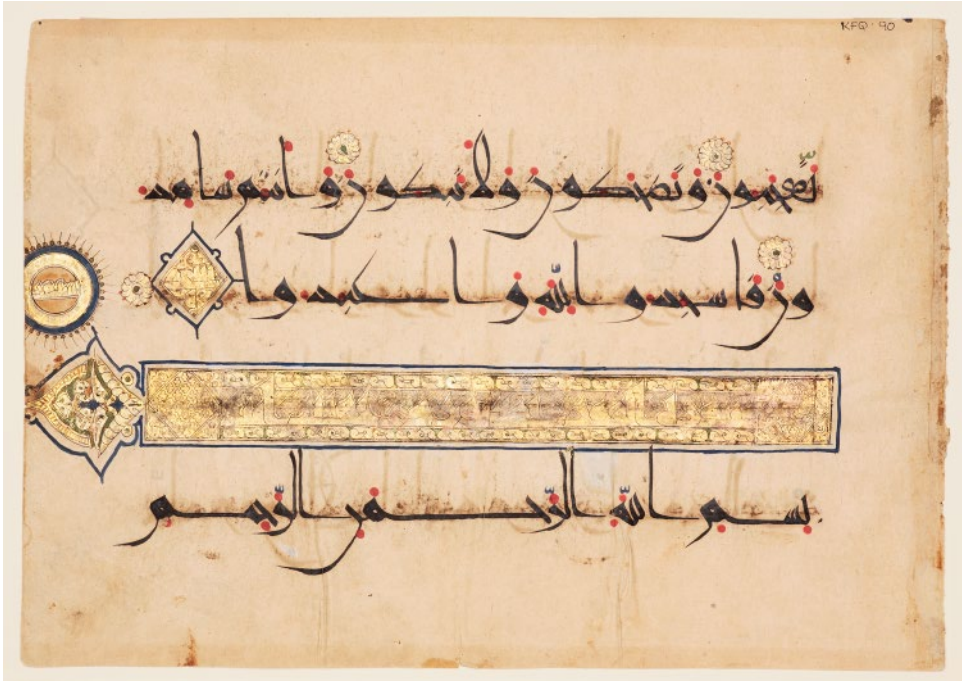 KFQ·90
تعجبون وتضحكون ولا تبكون وانتم سامد
ون فاسجدوا لله واعبدوا
بسم الله الرحمن الرحيم